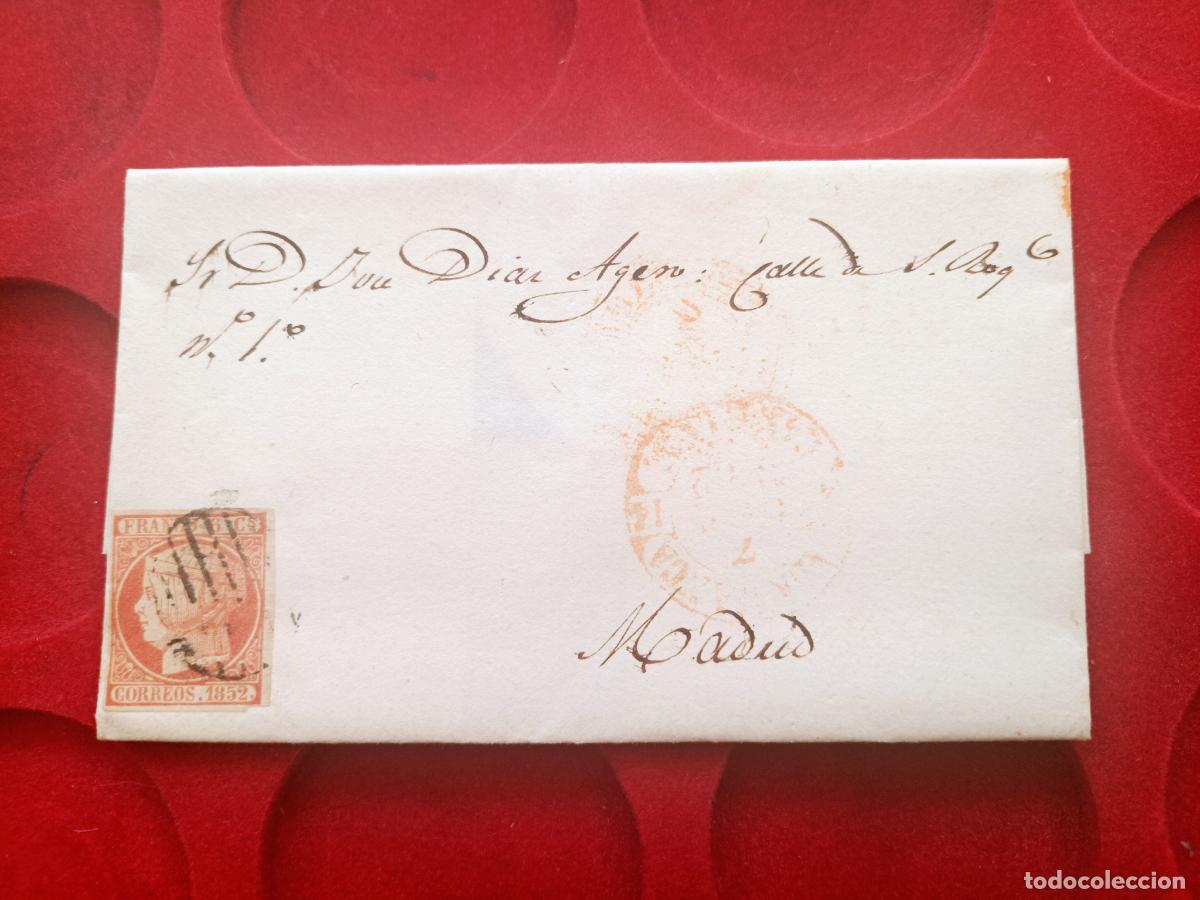 Sr D. José Diaz Agero: Calle de S. Roqe
nº. 1º
FRANCO 6 Cs
CORREOS. 1852.
Madrid
todocoleccion